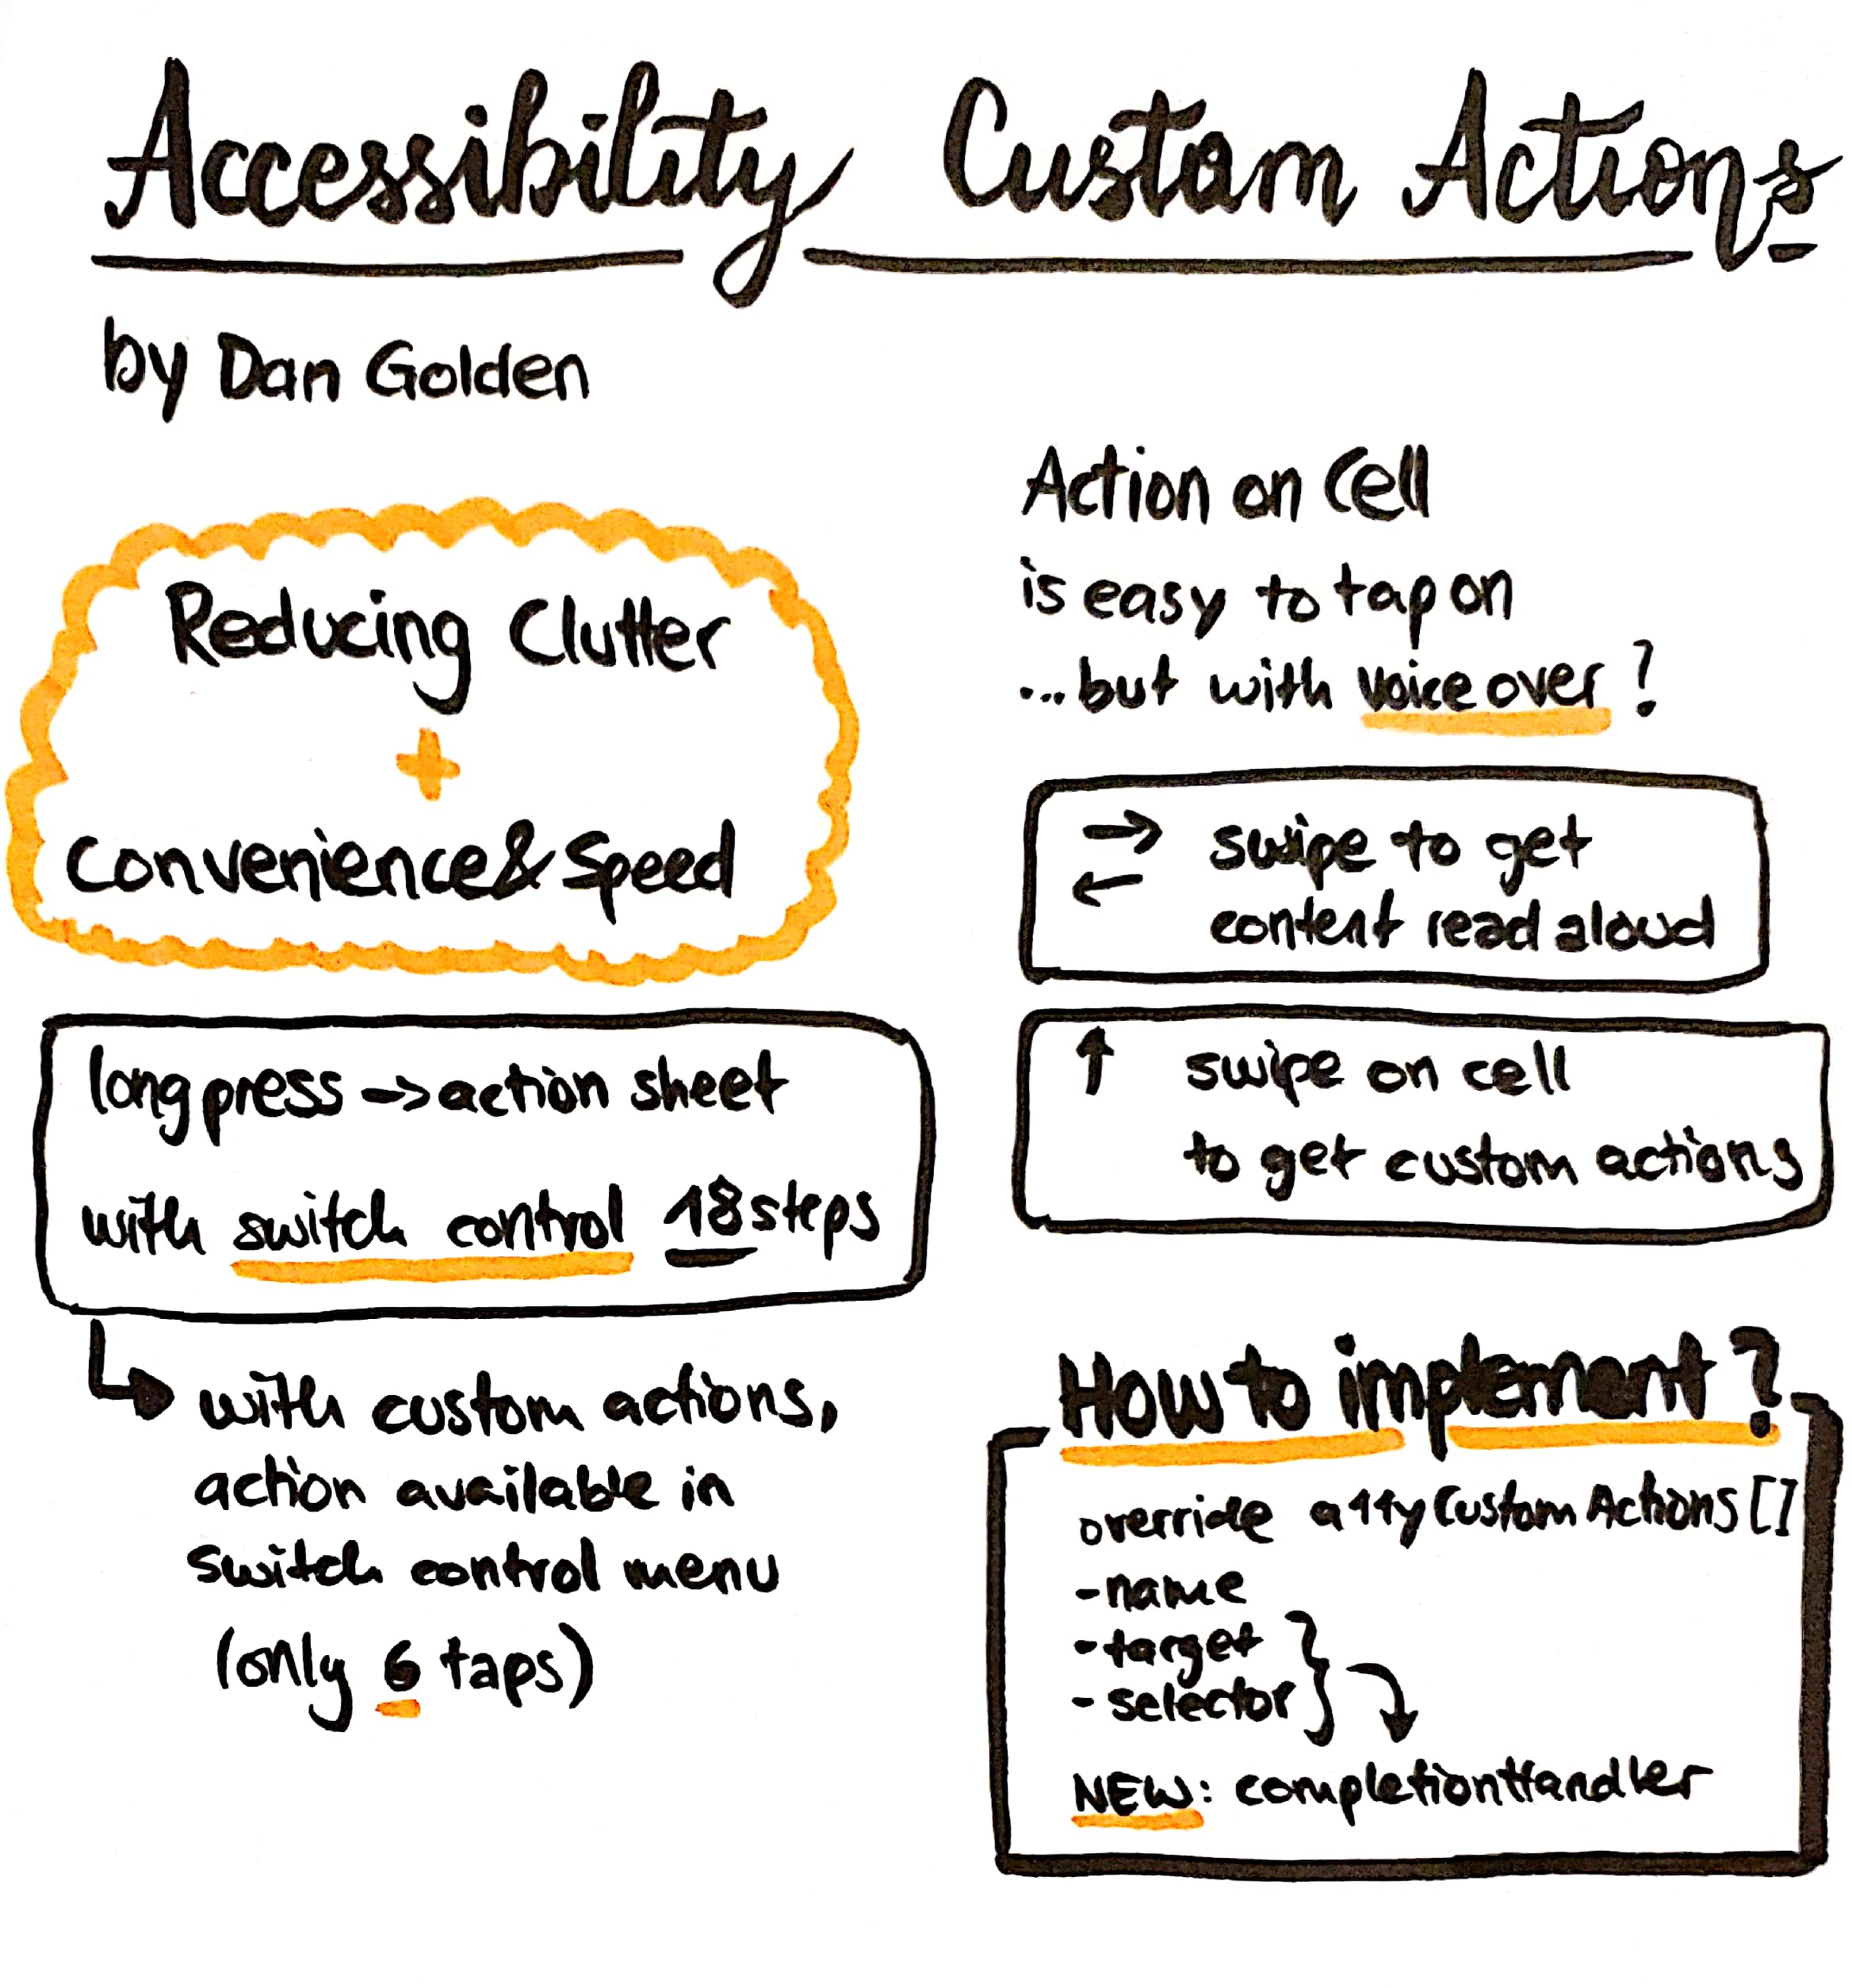 Accessibility Custom Actions
by Dan Golden
Reducing Clutter
+
Convenience & Speed
long press -> action sheet
with switch control 18 steps
↳ with custom actions,
action available in
switch control menu
(only 6 taps)
Action on Cell
is easy to tap on
...but with voice over?
→ swipe to get
← content read aloud
↑ swipe on cell
to get custom actions
How to implement?
override a11yCustomActions[]
- name
- target
- selector
NEW: completionHandler